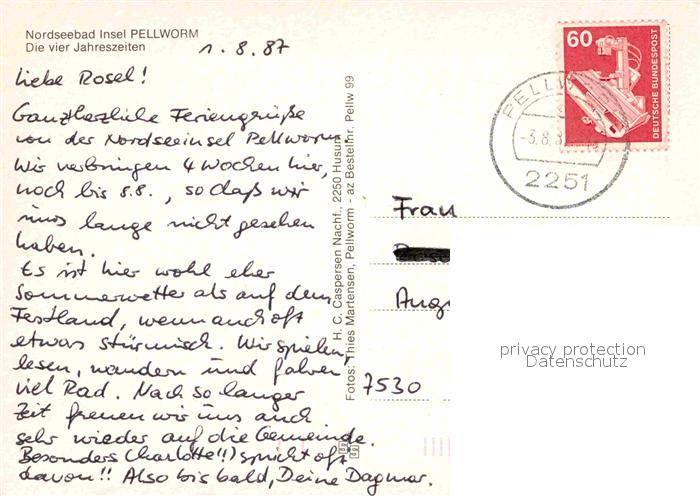 Nordseebad Insel PELLWORM
Die vier Jahreszeiten
1.8.87
Liebe Rosel!
Ganz herzliche Feriengrüße
von der Nordseeinsel Pellworm.
Wir verbringen 4 Wochen hier,
noch bis 8.8., so daß wir
uns lange nicht gesehen
haben.
Es ist hier wohl eher
Sommerwetter als auf dem
Festland, wenn auch oft
etwas stürmisch. Wir spielen,
lesen, wandern und fahren
viel Rad. Nach so langer
Zeit freuen wir uns auch
sehr wieder auf die Gemeinde.
Besonders Charlotte!!) spricht oft
davon!! Also bis bald, Deine Dagmar.
H. C. Caspersen Nachf., 2250 Husum
Fotos: Thies Martensen, Pellworm - az Bestellnr. Pellw 99
60
DEUTSCHE BUNDESPOST
PELLW
-3.8.8
2251
Frau
Augu
7530
privacy protection
Datenschutz